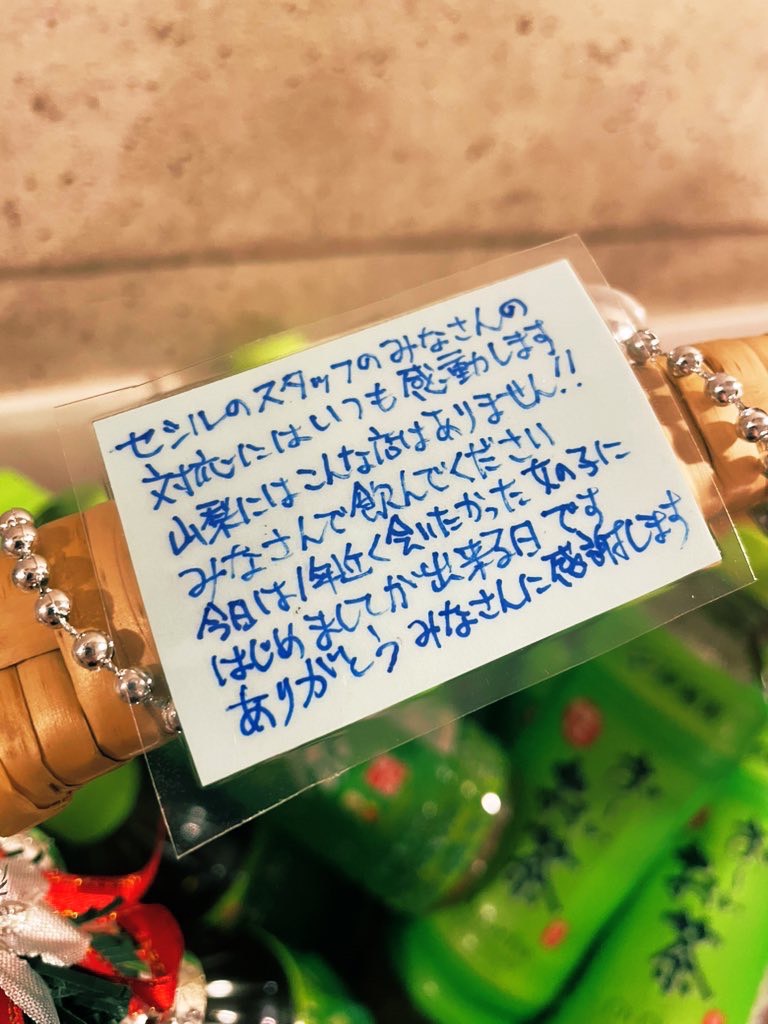 セシルのスタッフのみなさんの
対応にはいつも感動します
山梨にはこんな店はありません!!
みなさんで飲んでください
今日は1年近く会いたかった女の子に
はじめましてが出来る日です
ありがとう みなさんに感謝します
お~いお茶
お~いお茶